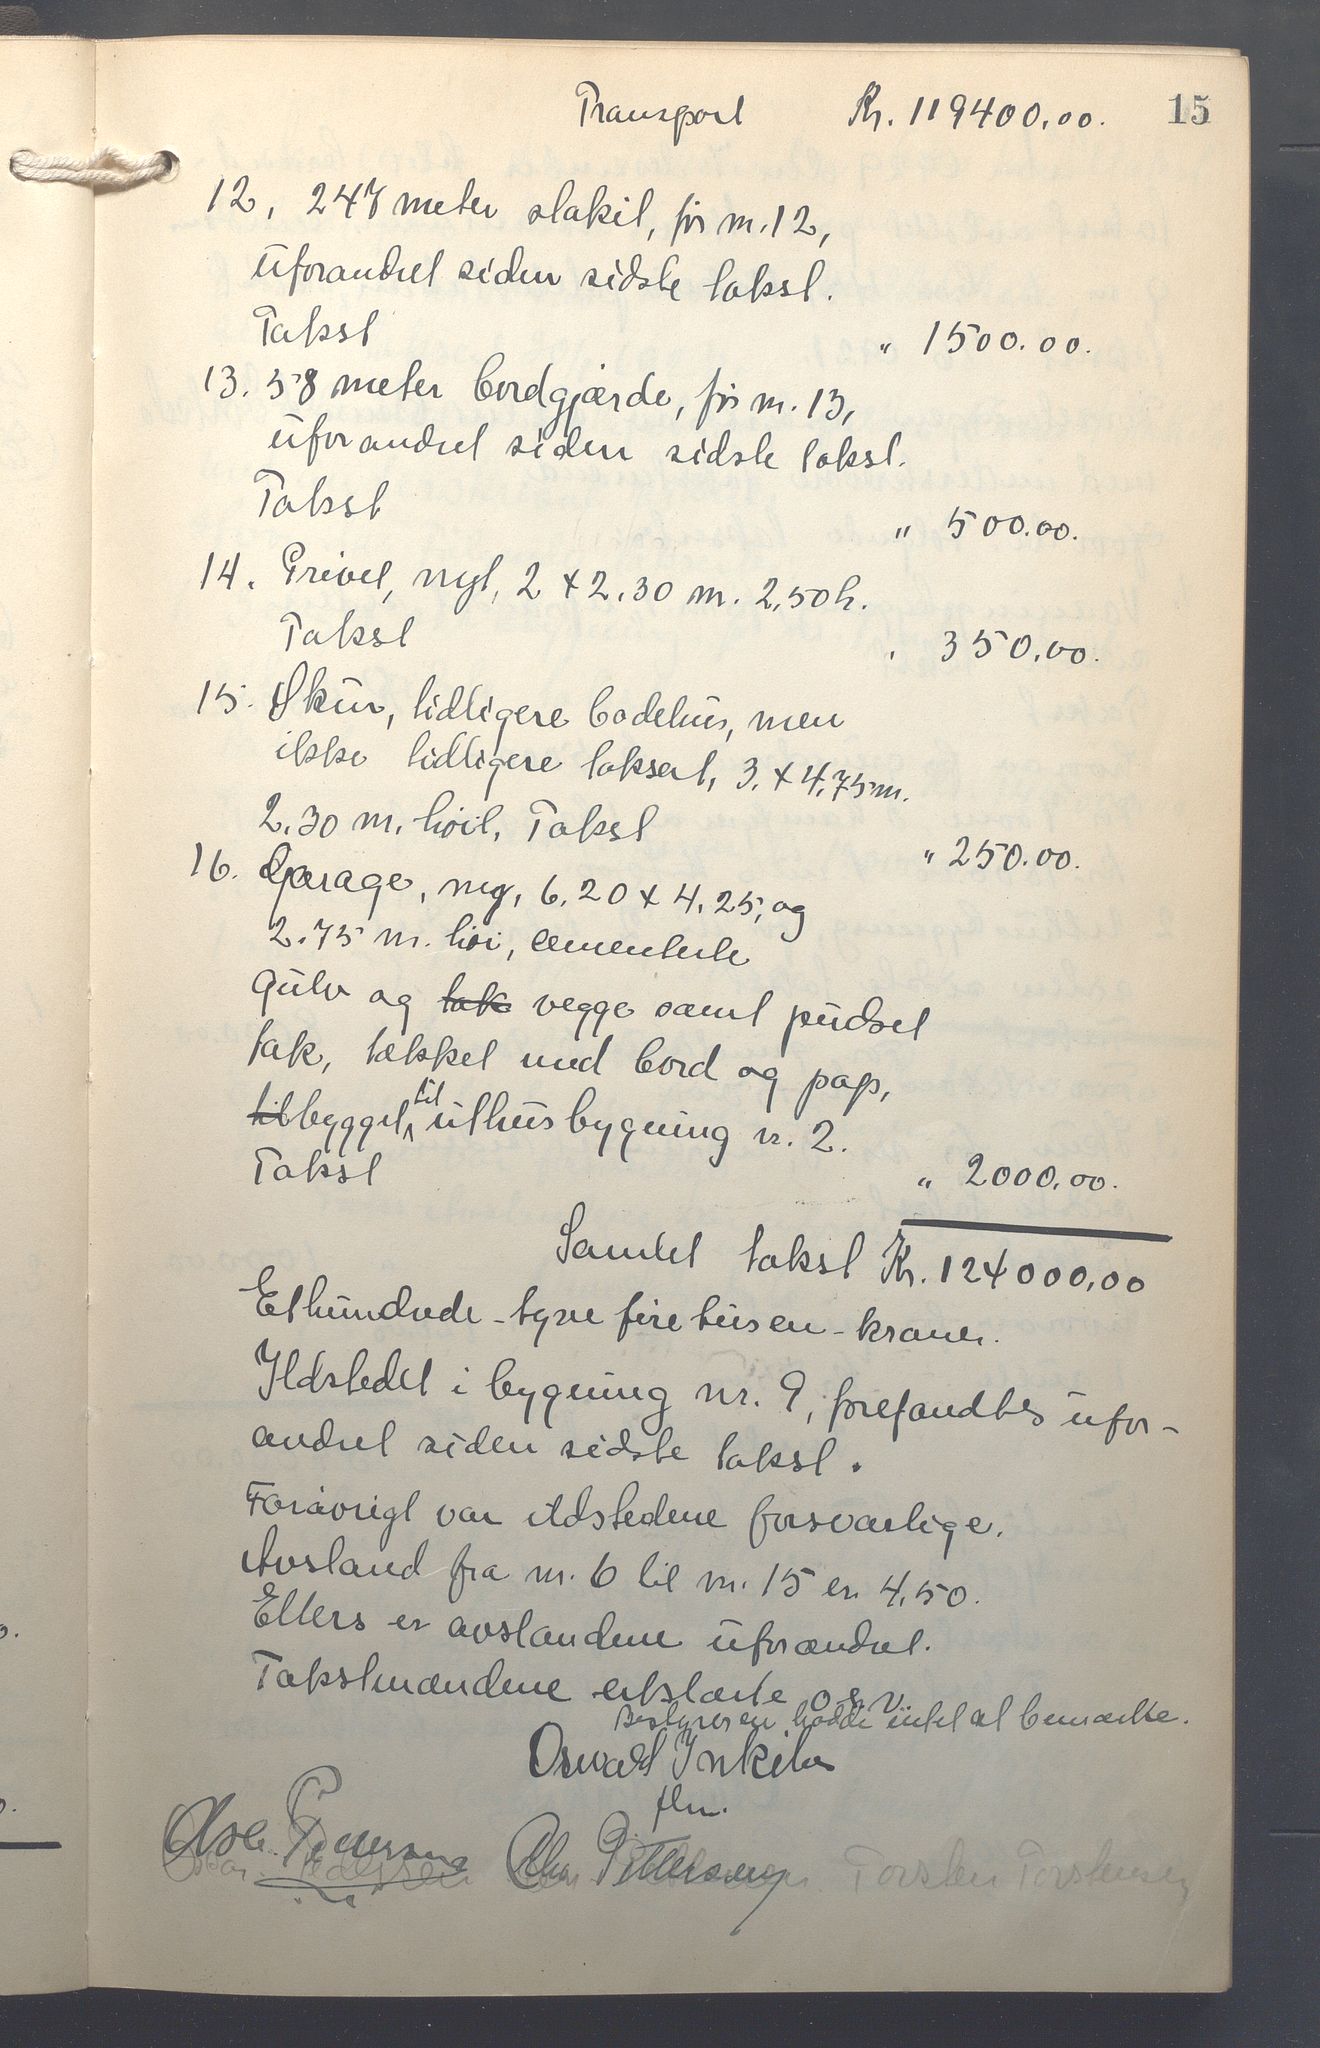 15
Transport Kr. 119400,00.
12, 247 meter stakit, før nr. 12,
uforandret siden sidste takst.
Takst " 1500.00.
13. 58 meter bordgjærde, før nr. 13,
uforandret siden sidste takst.
Takst " 500.00.
14. Privet, nyt, 2 x 2.30 m. 2,50 h.
Takst " 350,00.
15. Skur, tidligere badehus, men
ikke tidligere taksert, 3. x 4,75 m.
2.30 m. høit, Takst " 250.00.
16. Garage, ny, 6.20 x 4.25, og
2.75 m. høi, cementerte
gulv og tak vegge samt pudset
tak, tækket med bord og pap,
tilbygget til uthusbygning nr. 2.
Takst " 2000,00.
Samlet takst Kr. 124000,00
Ethundrede-tyve firetusen-kroner.
Ildstedet i bygning nr. 9, forefandtes ufor-
andret siden sidste takst.
Forøvrigt var ildstedene forsvarlige.
Avstand fra nr. 6 til nr. 15 er 4,50.
Ellers er avstandene uforandret.
Takstmændene erklærte o. s. v.
Bestyreren hadde intet at bemærke.
Oswald
fhm.
Pedersen
Torsten Torstensen